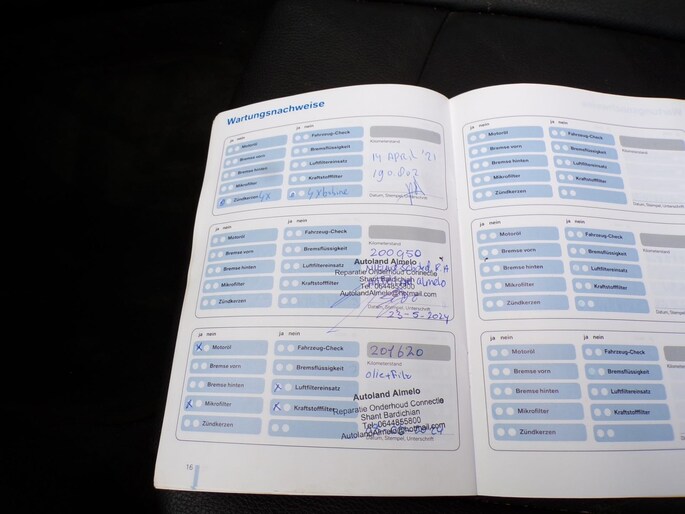 Wartungsnachweise
ja nein
Motoröl
Bremse vorn
Bremse hinten
Mikrofilter
Zündkerzen 4x
ja nein
Fahrzeug-Check
Bremsflüssigkeit
Luftfiltereinsatz
Kraftstofffilter
4x bobine
Kilometerstand
14 April '21
190.802
Datum, Stempel, Unterschrift
ja nein
Motoröl
Bremse vorn
Bremse hinten
Mikrofilter
Zündkerzen
ja nein
Fahrzeug-Check
Bremsflüssigkeit
Luftfiltereinsatz
Kraftstofffilter
200950
Autoland Almelo
Reparatie Onderhoud Connectie
Shant Bardichian
Tel:0644855800
AutolandAlmelo@hotmail.com
almelo
23-5-2024
ja nein
Motoröl
Bremse vorn
Bremse hinten
Mikrofilter
Zündkerzen
ja nein
Fahrzeug-Check
Bremsflüssigkeit
Luftfiltereinsatz
Kraftstofffilter
201620
Kilometerstand
Autoland Almelo
Reparatie Onderhoud Connectie
Shant Bardichian
Tel:0644855800
AutolandAlmelo@hotmail.com
Datum, Stempel, Unterschrift
16
ja nein
Motoröl
Bremse vorn
Bremse hinten
Mikrofilter
Zündkerzen
ja nein
Fahrzeug-Check
Bremsflüssigkeit
Luftfiltereinsatz
Kraftstofffilter
Kilometerstand
Datum, Stempel, Unterschrift
ja nein
Motoröl
Bremse vorn
Bremse hinten
Mikrofilter
Zündkerzen
ja nein
Fahrzeug-Check
Bremsflüssigkeit
Luftfiltereinsatz
Kraftstofffilter
Kilometerstand
Datum, Stempel, Unterschrift
ja nein
Motoröl
Bremse vorn
Bremse hinten
Mikrofilter
Zündkerzen
ja nein
Fahrzeug-Check
Bremsflüssigkeit
Luftfiltereinsatz
Kraftstofffilter
Kilometerstand
Datum, Stempel, Unterschrift